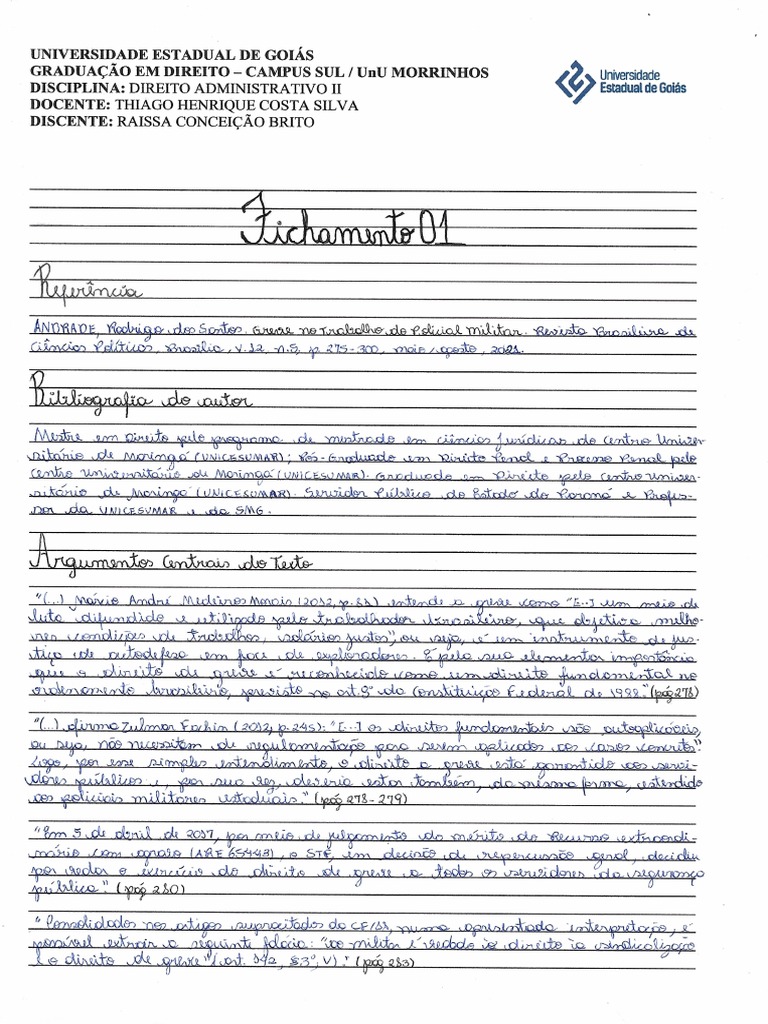 UNIVERSIDADE ESTADUAL DE GOIÁS
GRADUAÇÃO EM DIREITO – CAMPUS SUL / UnU MORRINHOS
DISCIPLINA: DIREITO ADMINISTRATIVO II
DOCENTE: THIAGO HENRIQUE COSTA SILVA
DISCENTE: RAISSA CONCEIÇÃO BRITO
Universidade
Estadual de Goiás
Fichamento 01
Referência
ANDRADE, Rodrigo dos Santos. Greve no Trabalho do Policial Militar. Revista Brasileira de
Ciências Políticas, Brasília, v.12, n.5, p. 275-300, maio/agosto, 2021.
Bibliografia do autor
Mestre em Direito pelo programa de mestrado em ciências jurídicas do Centro Univer-
sitário de Maringá (UNICESUMAR); Pós-Graduado em Direito Penal e Processo Penal pelo
Centro Universitário de Maringá (UNICESUMAR). Graduado em Direito pelo Centro Univer-
sitário de Maringá (UNICESUMAR). Servidor Público do Estado do Paraná e Profes-
sor da UNICESUMAR e da SMG.
Argumentos Centrais do Texto
"(...) Márvio André Medeiros Morais (2012, p. ) entende a greve como "[...] um meio de
luta difundido e utilizado pelo trabalhador brasileiro, que objetiva melho-
res condições de trabalhos, salários justos", ou seja, é um instrumento de jus-
tiça de autodefesa em face de exploradores. É pela sua elementar importância
que o direito de greve é reconhecido como um direito fundamental no
ordenamento brasileiro, previsto no art. 9º da Constituição Federal de 1988." (pág 278)
"(...) afirma Zulmar Fachin (2012, p. 245): "[...] os direitos fundamentais são autoaplicáveis,
ou seja, não necessitam de regulamentação para serem aplicados aos casos concretos"
Logo, por esse simples entendimento, o direito a greve está garantido aos servi-
dores públicos e, por sua vez, deveria estar também, da mesma forma, estendido
aos policiais militares estaduais." (pág 278-279)
"Em 5 de abril de 2017, por meio de julgamento do mérito do Recurso extraordi-
nário com agravo (ARE 654432), o STF, em decisão de repercussão geral, decidiu
por vedar o exercício do direito de greve a todos os servidores da segurança
pública." (pág 280)
"Consolidados nos artigos supracitados da CF/88, numa apresentada interpretação, é
possível extrair a seguinte falácia: "ao militar é vedado o direito à sindicalização
e o direito de greve" (art. 142, § 3º, V)." (pág 283)